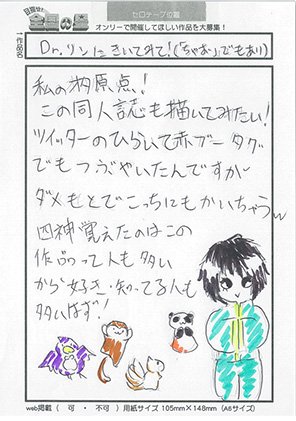 セロテープ位置
目指せ!
全星の華
オンリーで開催してほしい作品を大募集!
↑作品名
Dr.リンにきいてみて!(「ちゃお」でもあり)
私の柄原点!
この同人誌も描いてみたい!
ツイッターのひらいて赤ブータグ
でもつぶやいたんですが
ダメもとでこっちにもかいちゃうw
四神覚えたのはこの
作品って人も多い
から好き・知ってる人も
多いはず!
web掲載( 可 ・ 不可 )用紙サイズ 105mm×148mm(A6サイズ)